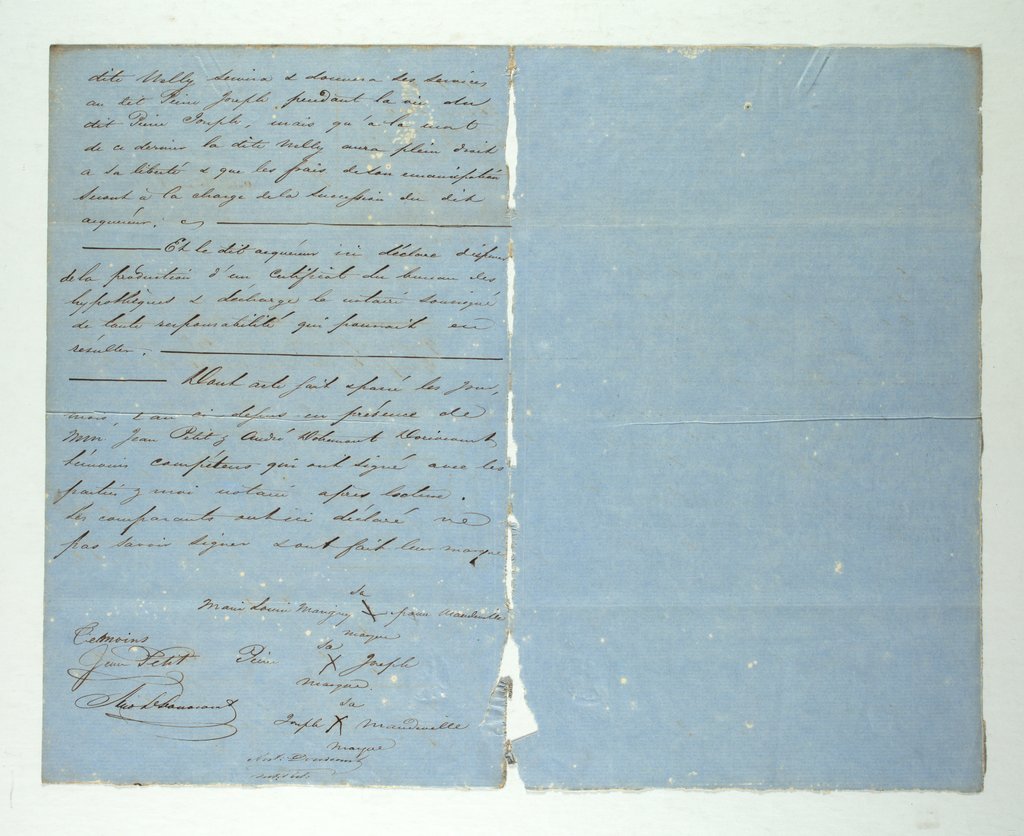 dite Nelly servira & donnera ses services
au dit Pierre Joseph pendant la vie du
dit Pierre Joseph, mais qu'a la mort
de ce dernier la dite Nelly aura plein droit
a sa liberté & que les frais de son emancipation
seront à la charge de la succession du dit
acquéreur.
Et le dit acquéreur ici déclare dispenser
de la production d'un Certificat du bureau des
hypothèques & décharge le notaire soussigné
de toute responsabilité qui pourrait en
résulter.
Dont acte fait & passé les jour,
mois & an ci dessus en présence de
Mm. Jean Petit & André
témoins compétens qui ont signé avec les
parties & moi notaire apres lecture.
les comparants ont ici déclaré ne
pas savoir signer & ont fait leur marque
sa
Marie Louise X Mandeville
marque
Temoins
sa
Jean Petit Pierre X Joseph
marque.
sa
Joseph X Mandeville
marque